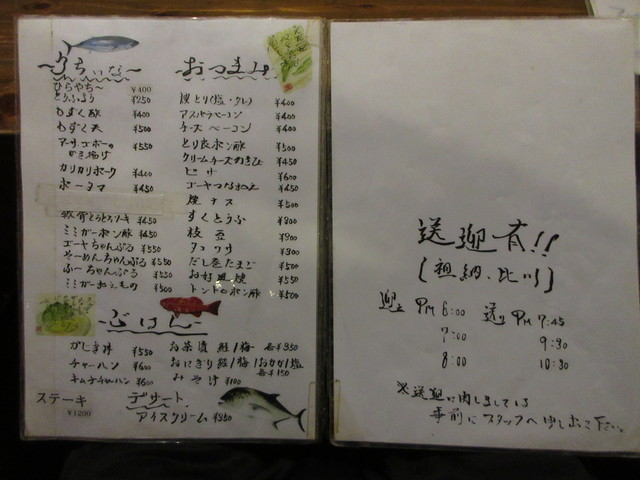 うちぃなー
ひらやちー ¥400
¥250
もずく酢 ¥400
もずく天 ¥500
アーサ、ゴボーの
かき揚げ ¥550
カリカリポーク ¥400
ポータマ ¥450
軟骨とろとろソーキ ¥650
ミミガーポン酢 ¥450
ゴーヤちゃんぷる ¥550
そーめんちゃんぷる ¥550
ふーちゃんぷる ¥550
ミミガー和えもの ¥500
おつまみ
焼とり(塩・タレ) ¥400
アスパラベーコン ¥400
チーズベーコン ¥400
とり皮ポン酢 ¥500
クリームチーズ ¥450
ピザ ¥600
ゴーヤつなあえ ¥450
焼ナス ¥500
すくとうふ ¥300
枝豆 ¥300
タコワサ ¥300
だし巻たまご ¥500
お好み焼 ¥550
トントロポン酢 ¥500
ごはん
がしま丼 ¥550
チャーハン ¥600
キムチチャーハン ¥600
お茶漬 鮭/梅 各¥350
おにぎり 鮭/梅/おかか/塩
各¥150
みそ汁 ¥100
ステーキ
¥1200
デザート
アイスクリーム ¥350
送迎有!!
(祖納、比川)
迎え PM 6:00 送り PM 7:45
7:00 9:30
8:00 10:30
※送迎に関しましては
事前にスタッフへ申し出て下さい。